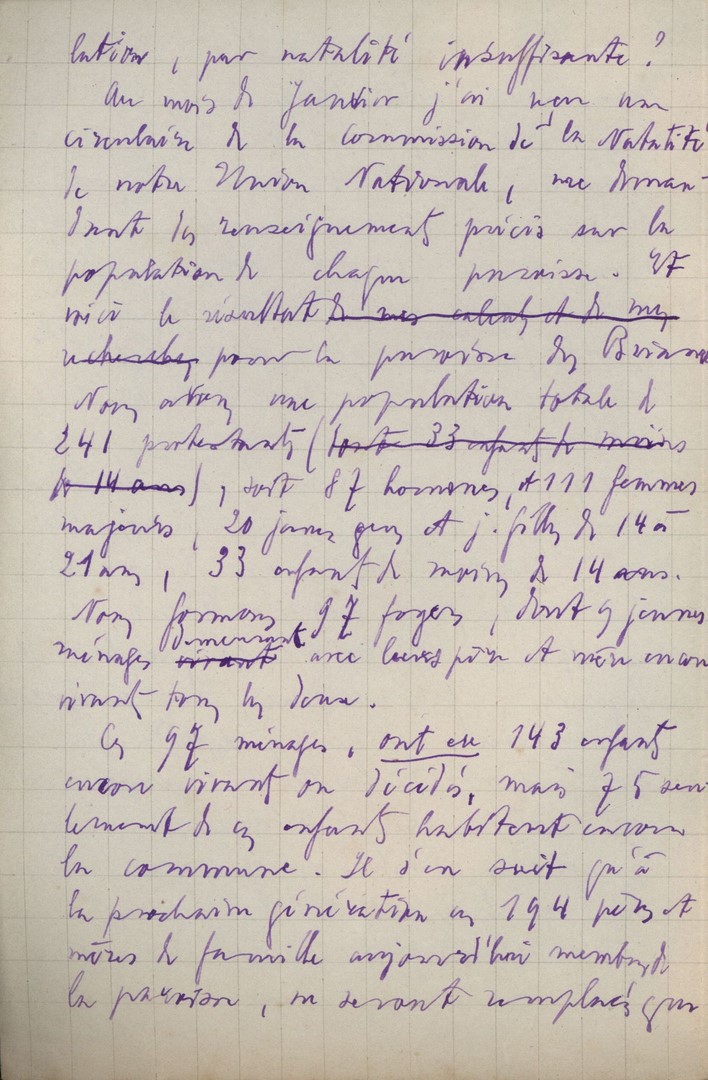 lation, par natalité insuffisante ?
Au mois de Janvier j'ai reçu une
circulaire de la Commission de la Natalité
de notre Union Nationale, me deman-
dant des renseignements précis sur la
population de chaque paroisse. Et
voici le résultat de mes calculs et de mes
recherches pour la paroisse des
Nous avons une population totale de
241 protestants (dont 33 enfants de moins
de 14 ans), soit 87 hommes, et 111 femmes
majeurs, 20 jeunes gens et j. filles de 14 à
21 ans, 33 enfants de moins de 14 ans.
Nous formons 97 foyers, dont 9 jeunes
ménages vivant demeurant avec leurs père et mère encore
vivants tous les deux.
Ces 97 ménages, ont eu 143 enfants
encore vivants ou décédés, mais 75 seu-
lement de ces enfants habitent encore
la commune. Il s'en suit qu'à
la prochaine génération ces 194 pères et
mères de famille aujourd'hui membres de
la paroisse, ne seront remplacés que